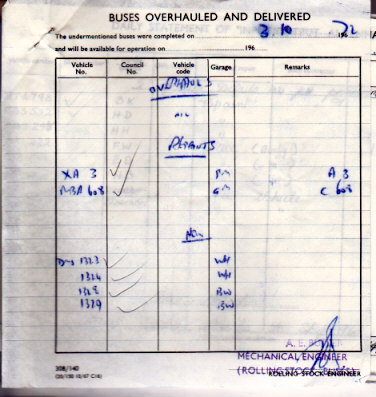 BUSES OVERHAULED AND DELIVERED
The undermentioned buses were completed on 3 10 196 72
and will be available for operation on 196
Vehicle No. Council No. Vehicle code Garage Remarks
OVERHAULS
NIL
REPAINTS
XA 3 PM A 3
MBA 608 GM C 608
NEW
DMS 1323 WH
1324 WH
1328 BW
1329 BW
A. E.
MECHANICAL ENGINEER
(ROLLING STOCK, BUSES)
ROLLING STOCK ENGINEER
308/140
(20/150 10/67 C16)